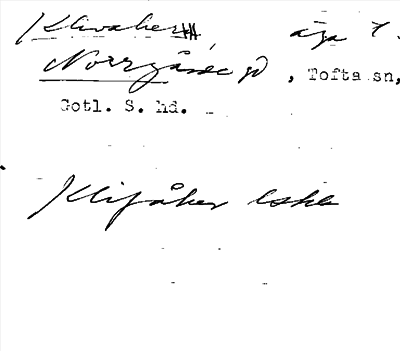 Klivaker, äga t.
Norrgårde gd, Tofta sn,
Gotl. S. hd.
Klifåker